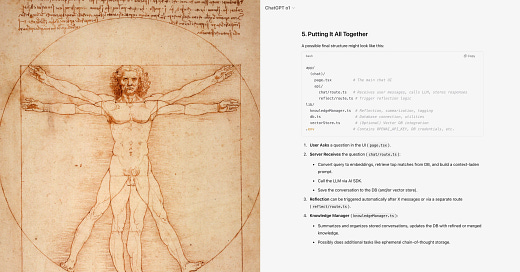 ChatGPT o1
5. Putting It All Together
A possible final structure might look like this:
bash
Copy
app/
(chat)/
page.tsx # The main chat UI
api/
chat/route.ts # Receives user messages, calls LLM, stores responses
reflect/route.ts # Trigger reflection logic
lib/
knowledgeManager.ts # Reflection, summarization, tagging
db.ts # Database connection, utilities
vectorStore.ts # (Optional) Vector DB integration
.env # Contains OPENAI_API_KEY, DB credentials, etc.
1. User Asks a question in the UI (page.tsx).
2. Server Receives the question (chat/route.ts):
• Convert query to embeddings, retrieve top matches from DB, and build a context-laden
prompt.
• Call the LLM via AI SDK.
• Save the conversation to the DB (and/or vector store).
3. Reflection can be triggered automatically after X messages or via a separate route
(reflect/route.ts).
4. Knowledge Manager (knowledgeManager.ts):
• Summarizes and organizes stored conversations, updates the DB with refined or merged
knowledge.
• Possibly does additional tasks like ephemeral chain-of-thought storage.